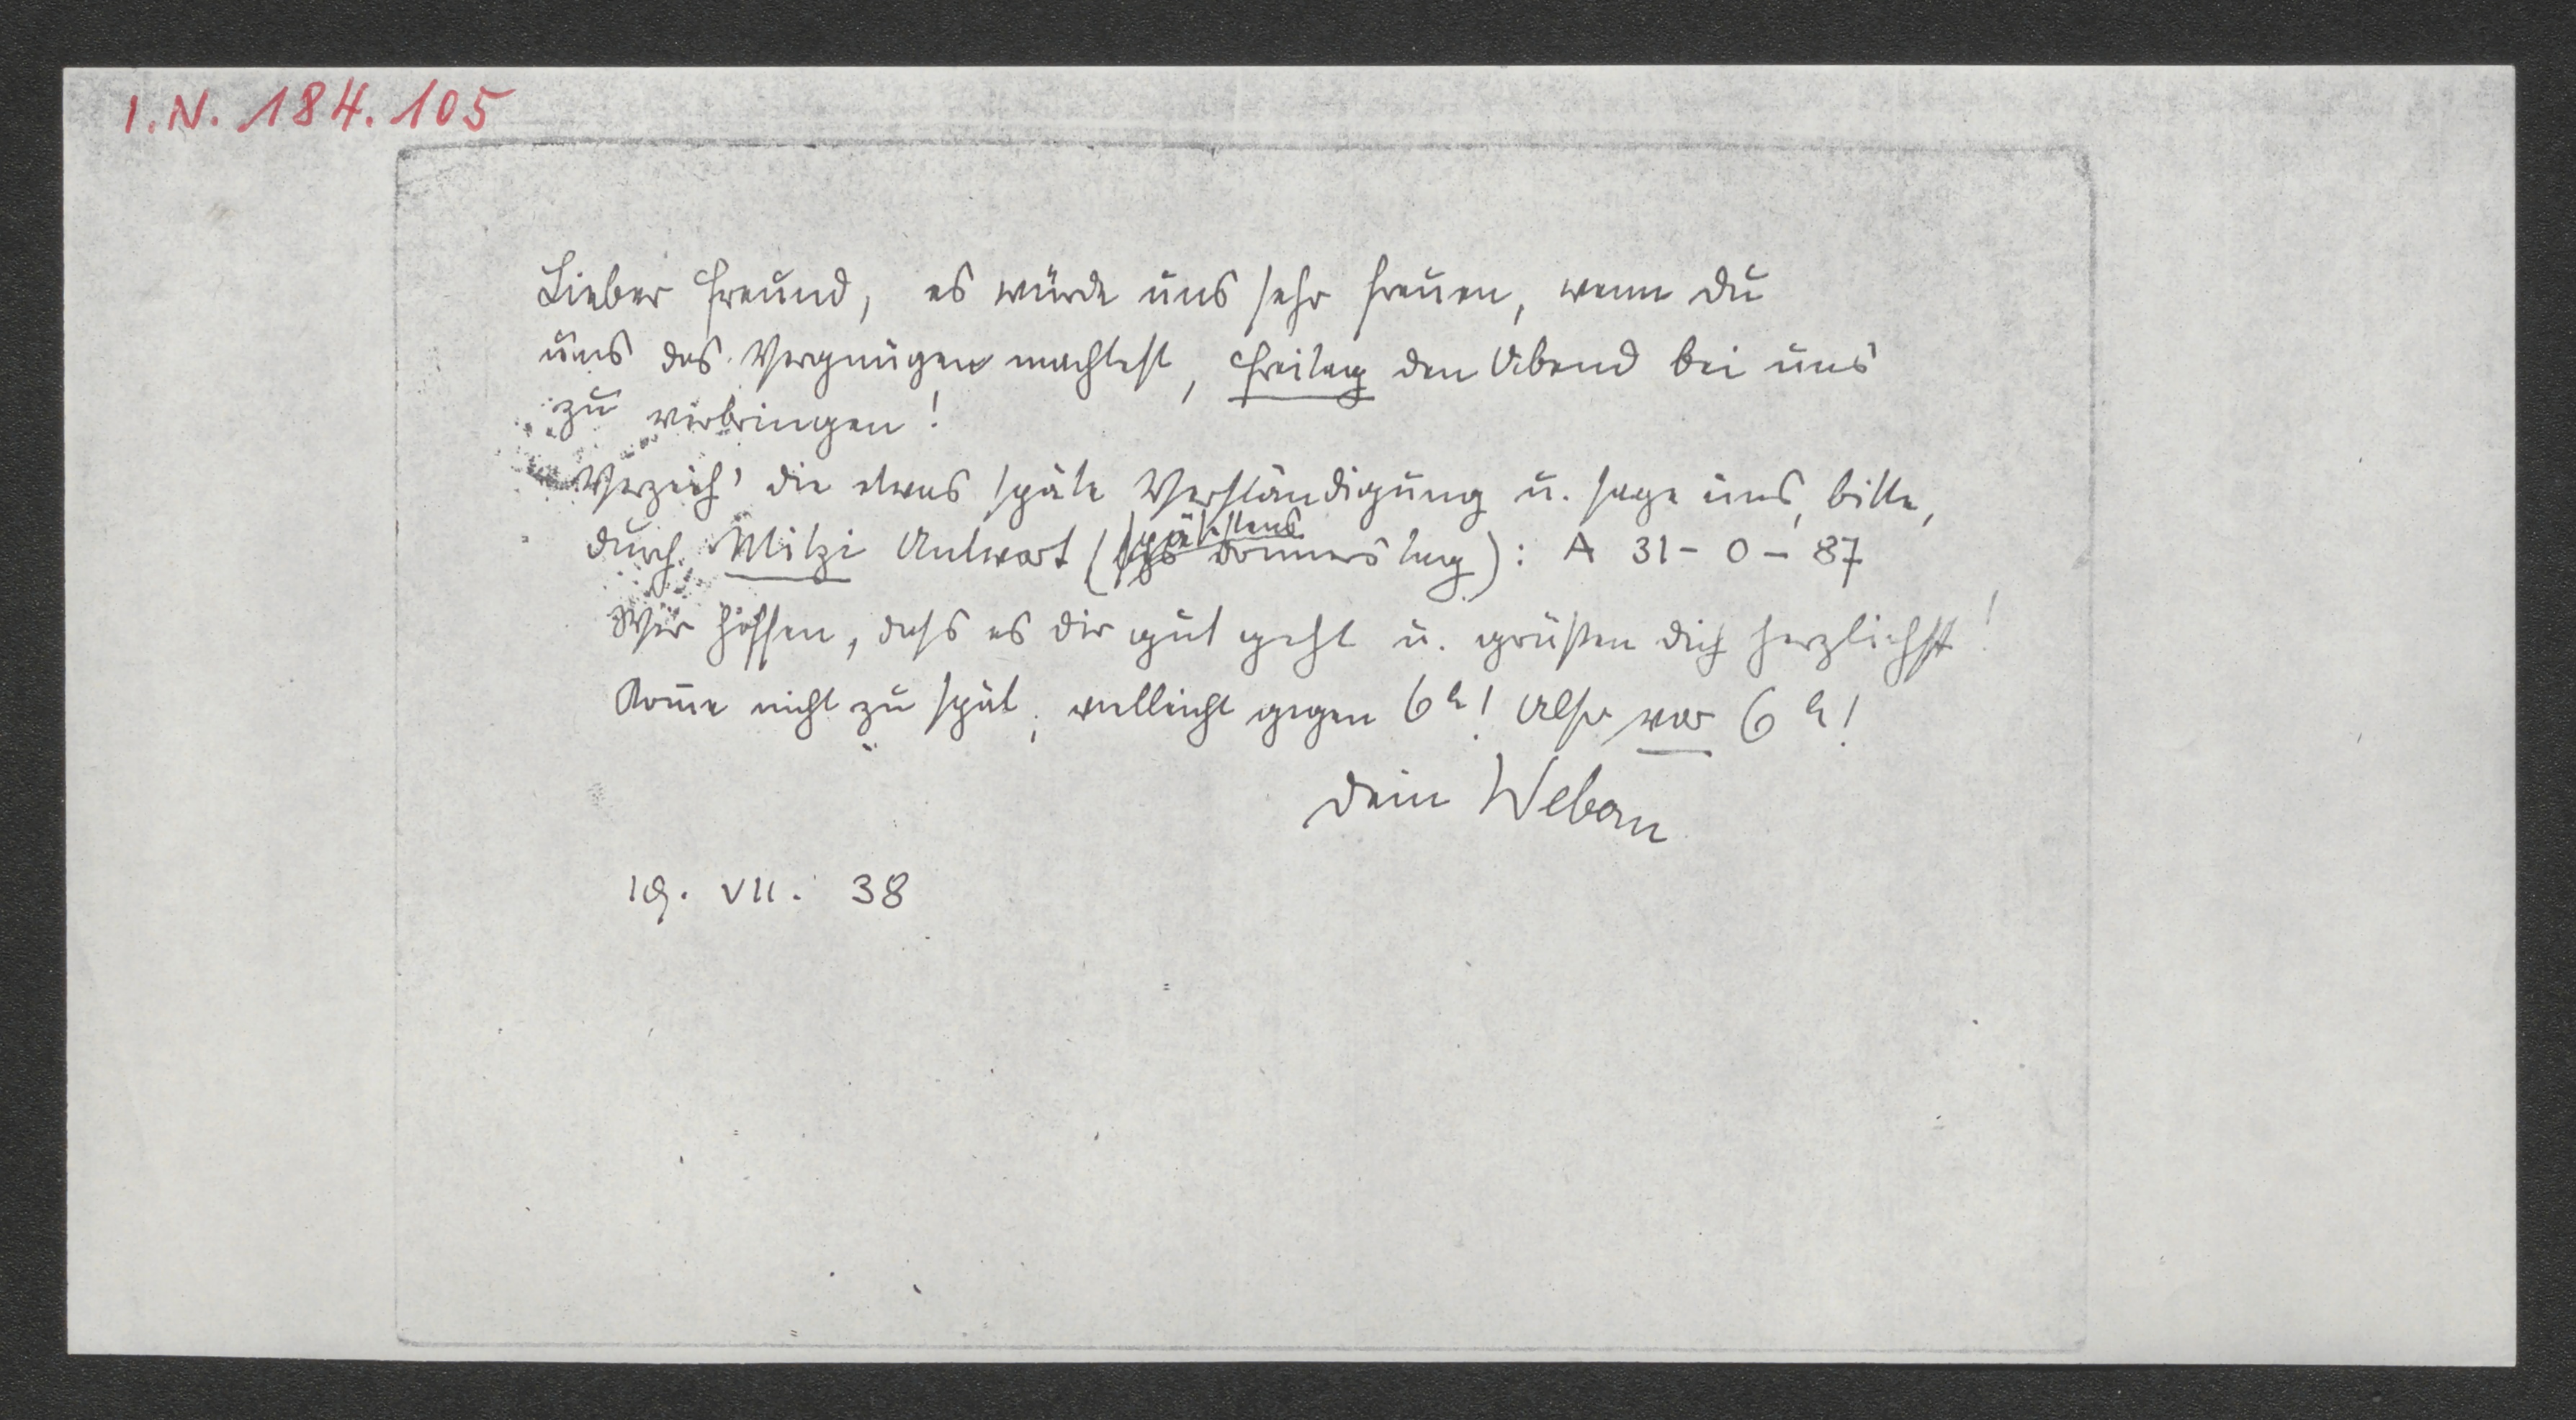 I.N. 184.105
Lieber Freund, es würde uns sehr freuen, wenn Du
uns das Vergnügen machtest, Freitag den Abend bei uns
zu verbringen!
Verzeih' die etwas späte Verständigung u. sage uns, bitte,
durch Mitzi Antwort (spätestens
Donnerstag): A 31-0-87
Wir hoffen, dass es Dir gut geht u. grüßen Dich herzlichst!
Kom̅e nicht zu spät, vielleicht gegen 6h! Also vor 6h!
Dein Webern
19. VII. 38